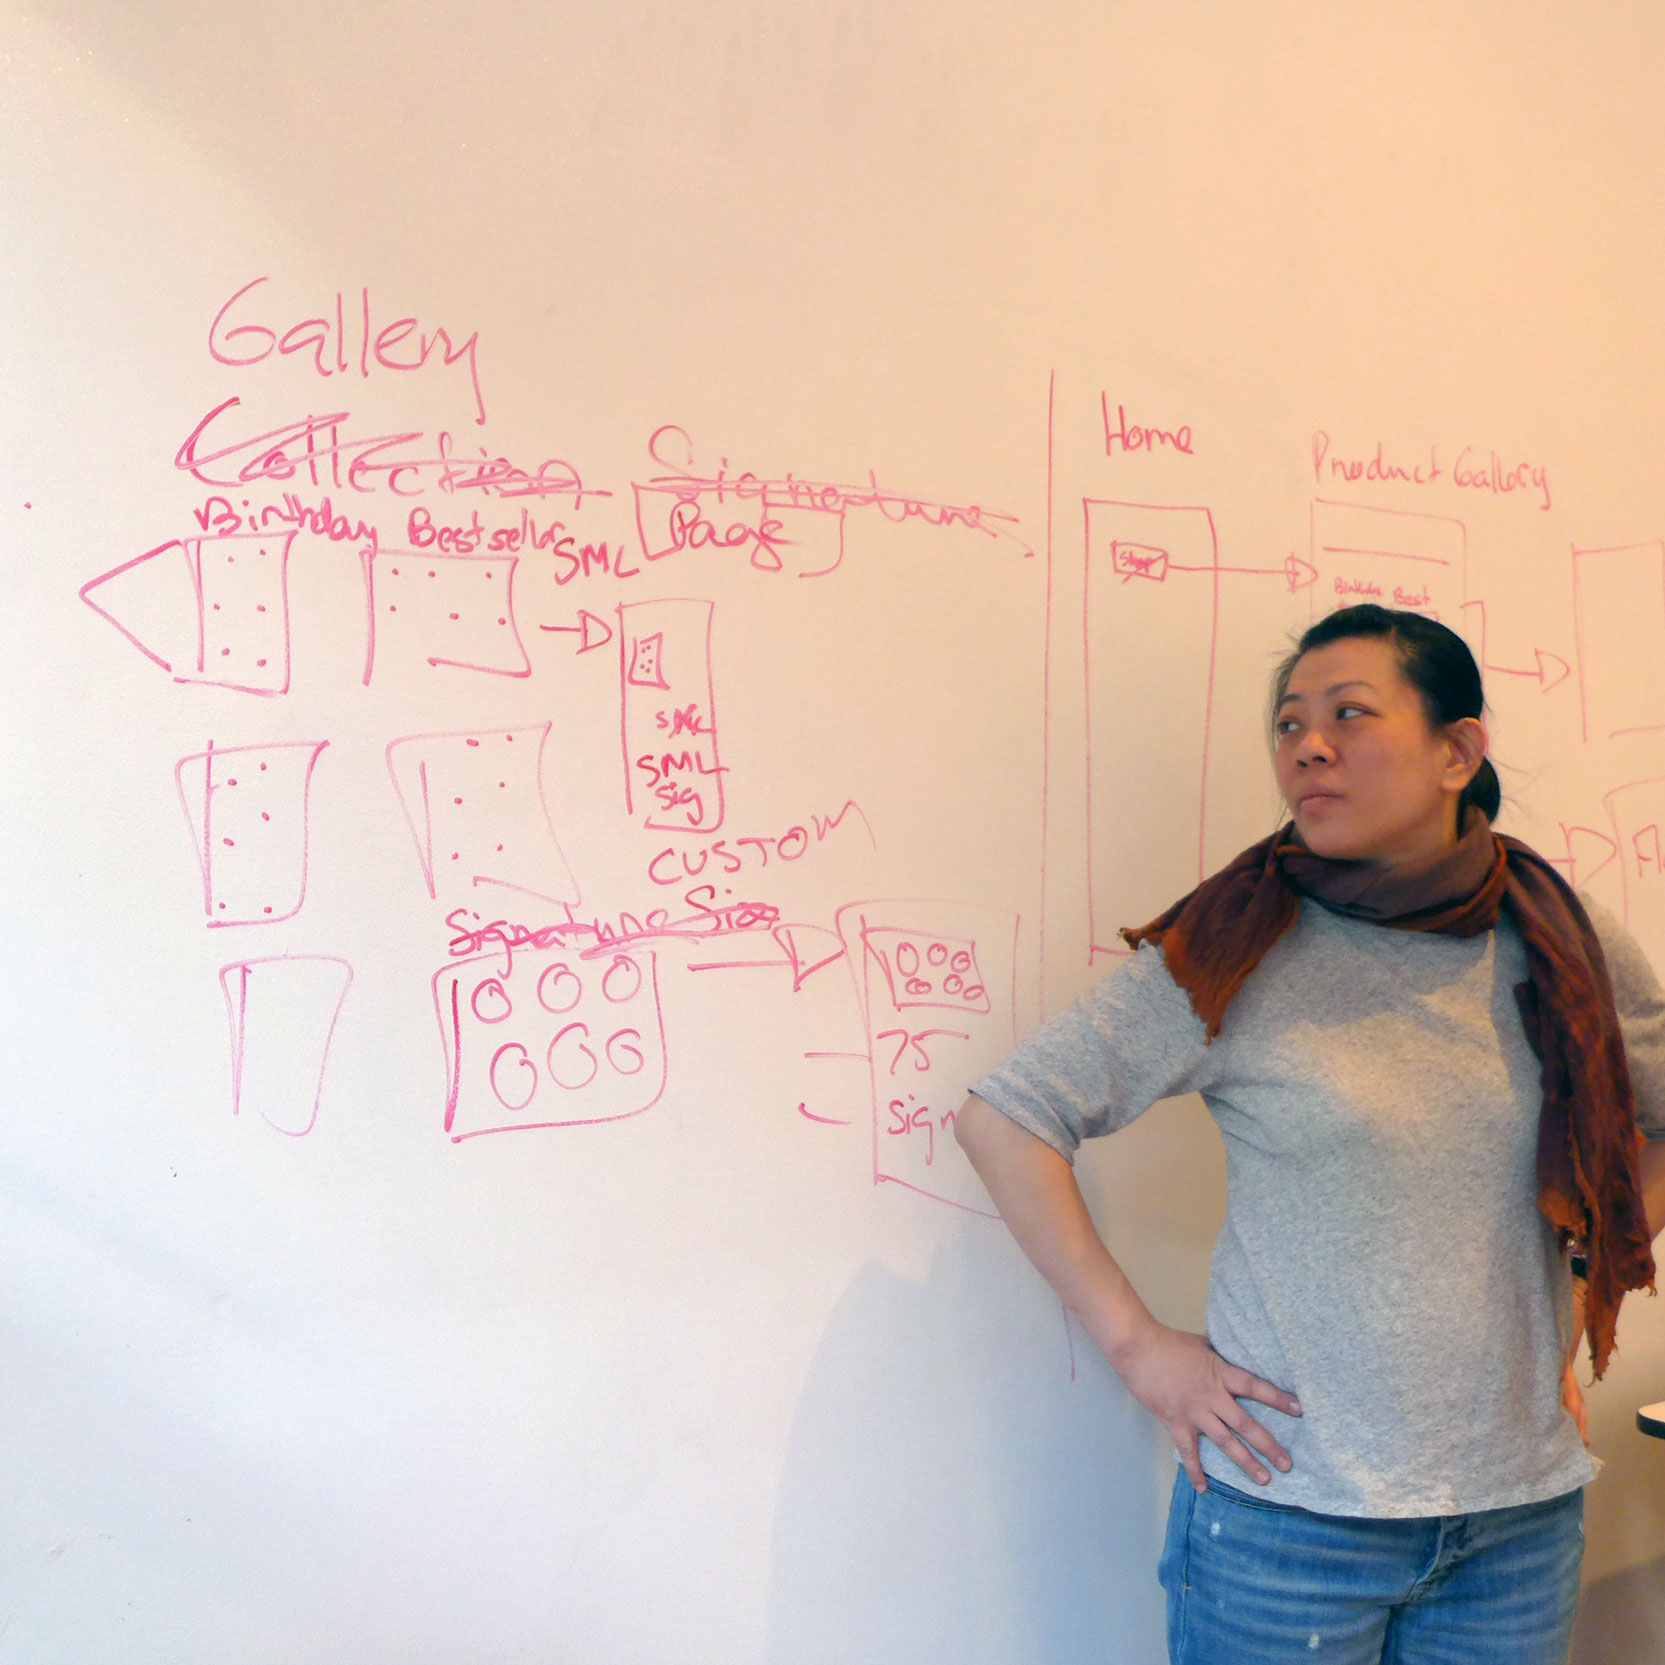 Gallery
Collection
Signature
Birthday Bestseller
SML
Page
SML
sig
CUSTOM
Signature Size
75
sign
Home
Shop
Product Gallery
Birthday Best